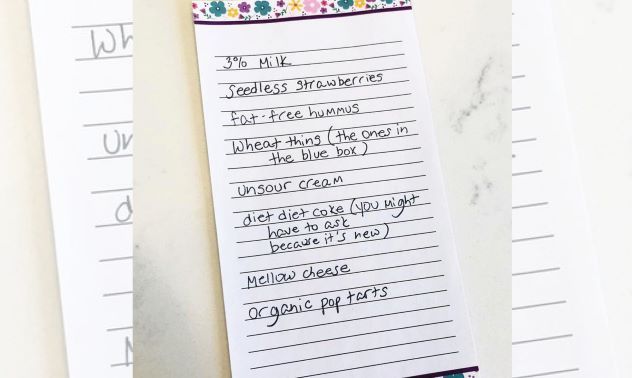 3% Milk
seedless strawberries
fat-free hummus
Wheat thing (the ones in
the blue box)
unsour cream
diet diet coke (you might
have to ask
because it's new)
Mellow cheese
organic pop tarts
Wh
un
d